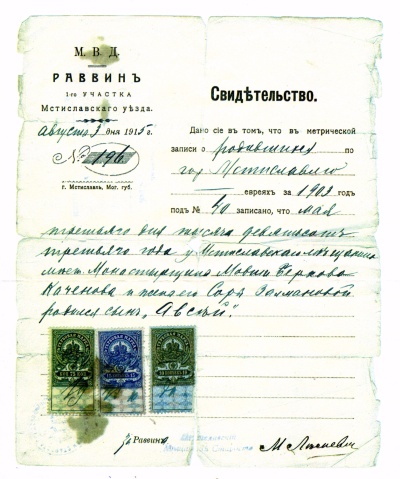 М. В. Д.
РАВВИНЪ
1-го УЧАСТКА
Мстиславскаго уѣзда.
Августа 3 дня 1915 г.
№ 196
г. Мстиславъ, Мог. губ.
Свидѣтельство.
Дано сіе въ томъ, что въ метрической
записи о родившихся по
гор. Мстиславлю
евреяхъ за 1903 годъ
подъ № 40 записано, что мая
третьяго дня тысяча девятьсотъ
третьяго года у Мстиславскаго мѣщанина
мѣст. Монастырщино Мовши Беркова
Каченова и жены его Соры Залмановой
родился сынъ „Авсѣй".
Раввина